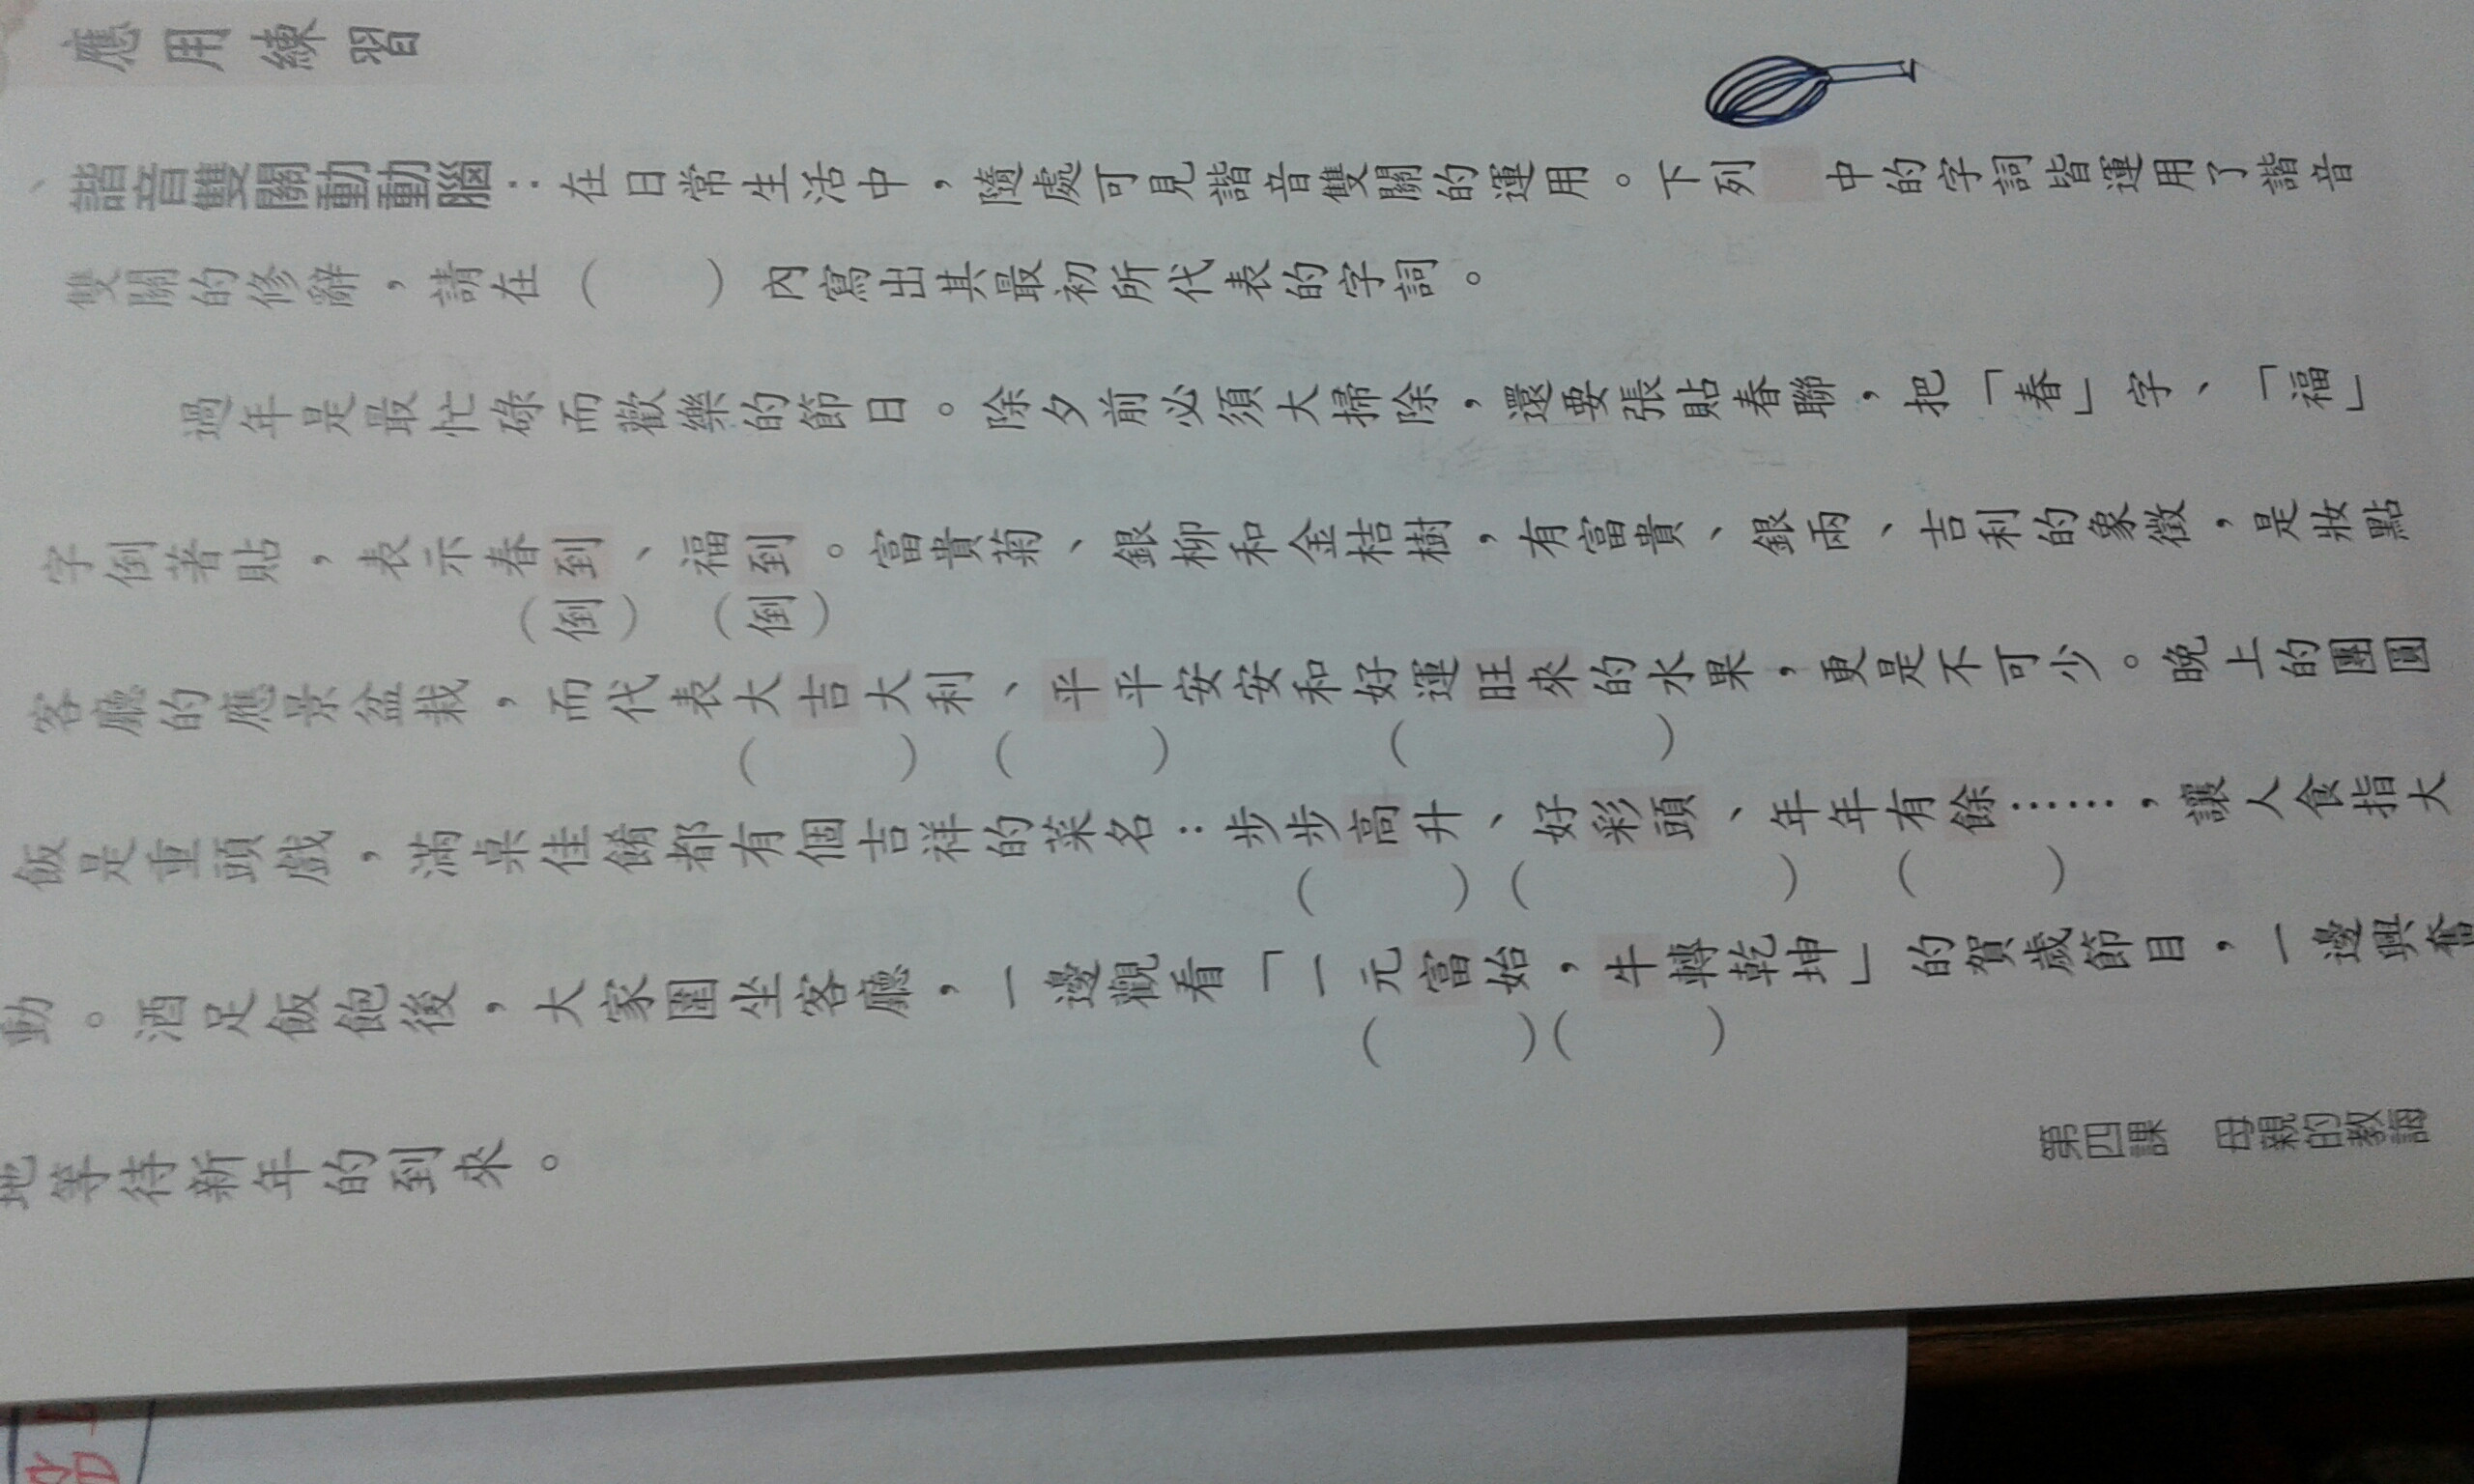 應用練習
、諧音雙關動動腦：在日常生活中，隨處可見諧音雙關的運用。下列　中的字詞皆運用了諧音
雙關的修辭，請在（　）內寫出其最初所代表的字詞。
過年是最忙碌而歡樂的節日。除夕前必須大掃除，還要張貼春聯，把「春」字、「福」
字倒著貼，表示春到、福到。富貴菊、銀柳和金桔樹，有富貴、銀兩、吉利的象徵，是妝點
（倒）（倒）
客廳的應景盆栽，而代表大吉大利、平平安安和好運旺來的水果，更是不可少。晚上的團圓
（　）（　）（　）
飯是重頭戲，滿桌佳餚都有個吉祥的菜名：步步高升、好彩頭、年年有餘……，讓人食指大
（　）（　）（　）
動。酒足飯飽後，大家圍坐客廳，一邊觀看「一元富始，牛轉乾坤」的賀歲節目，一邊興奮
（　）（　）
地等待新年的到來。
第四課　母親的教誨